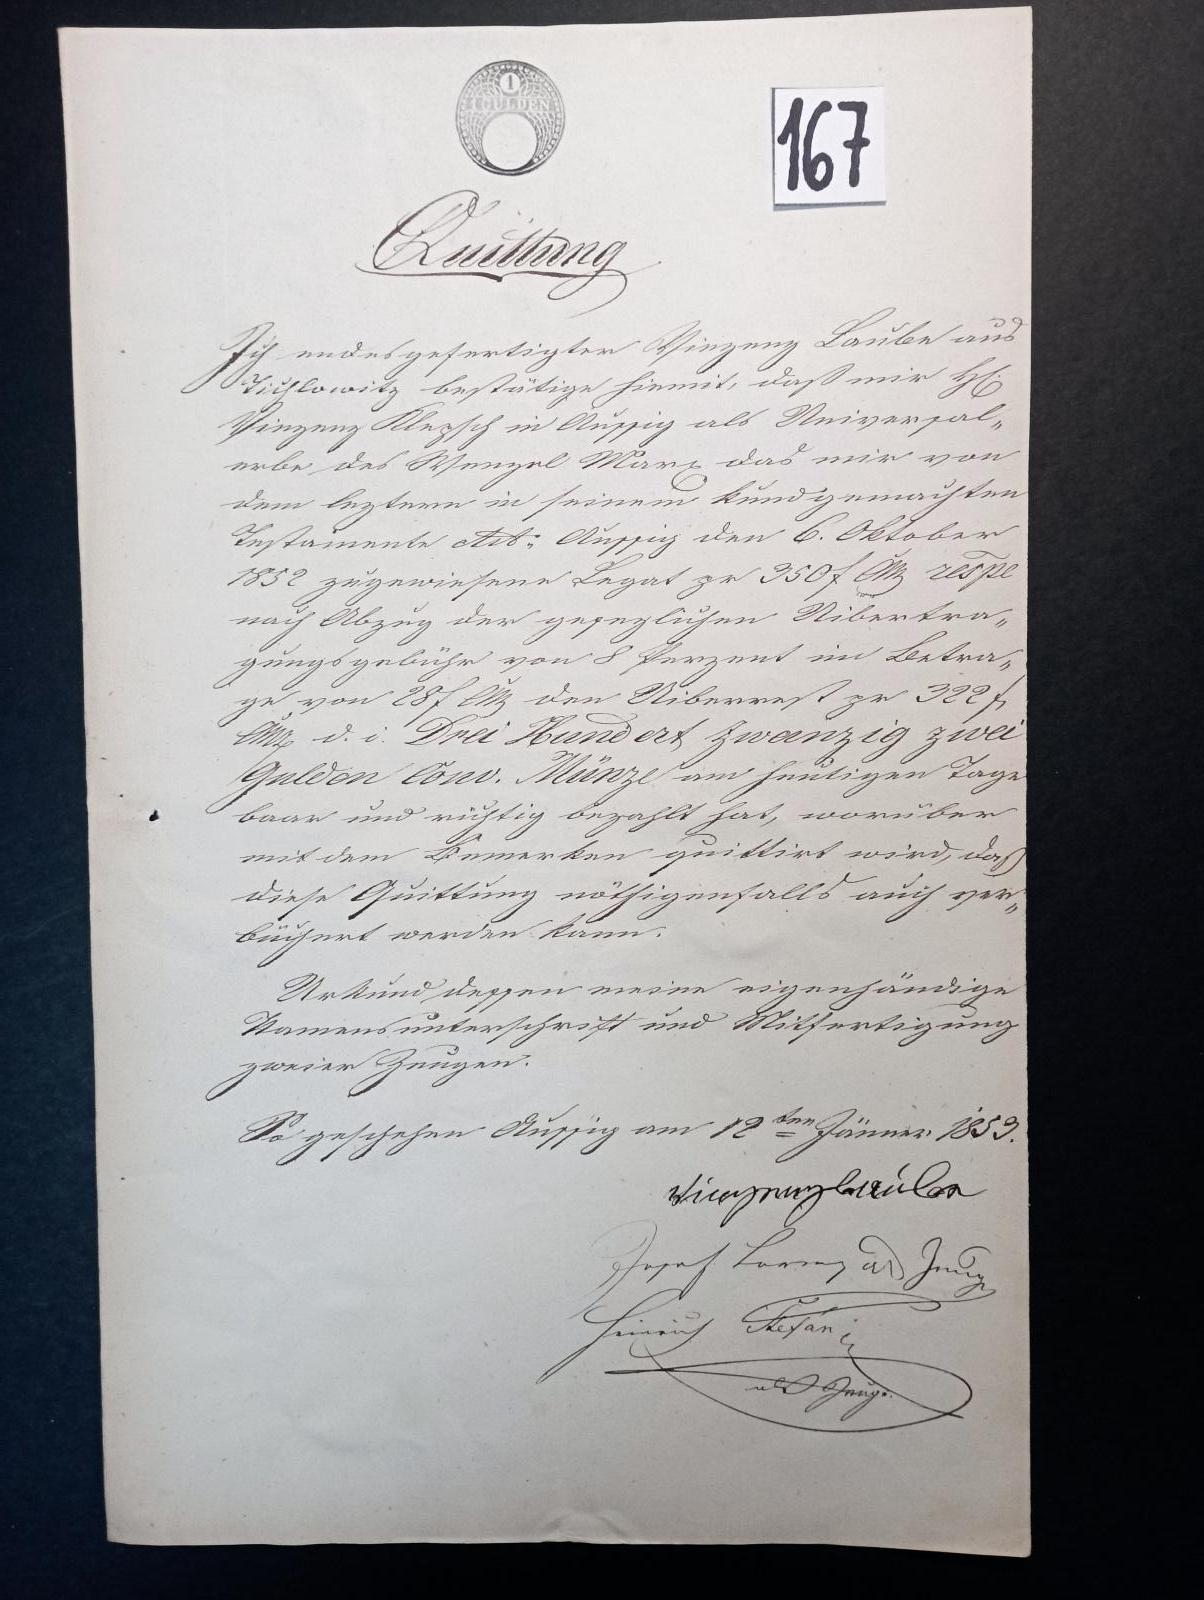 1
1 GULDEN
167
Quittung
Ich endesgefertigter Vinzenz Laube aus
bestätige hiemit, daß mir H.
Vinzenz Klepsch in Aussig als Universal-
erbe des Wenzel Marx das mir von
dem leztern in seinem kundgemachten
Testamente dto: Aussig den 6. Oktober
1852 zugewiesene Legat pr 350 f CMz respe
nach Abzug der gesezlichen Uibertra-
gungsgebühr von 8 Perzent im Betra-
ge von 28 f CMz den Uiberrest pr 322 f
CMz d. i. Drei Hundert zwanzig zwei
Gulden Conv. Münze am heutigen Tage
baar und richtig bezahlt hat, worüber
mit dem Bemerken quittirt wird, daß
diese Quittung nöthigenfalls auch ver-
büchert werden kann.
Urkund dessen meine eigenhändige
Namensunterschrift und Mitfertigung
zweier Zeugen.
So geschehen Aussig am 12ten Jänner 1853.
Vinzenz Laube
Josef Lorenz als Zeuge
Heinrich Stefan
als Zeuge